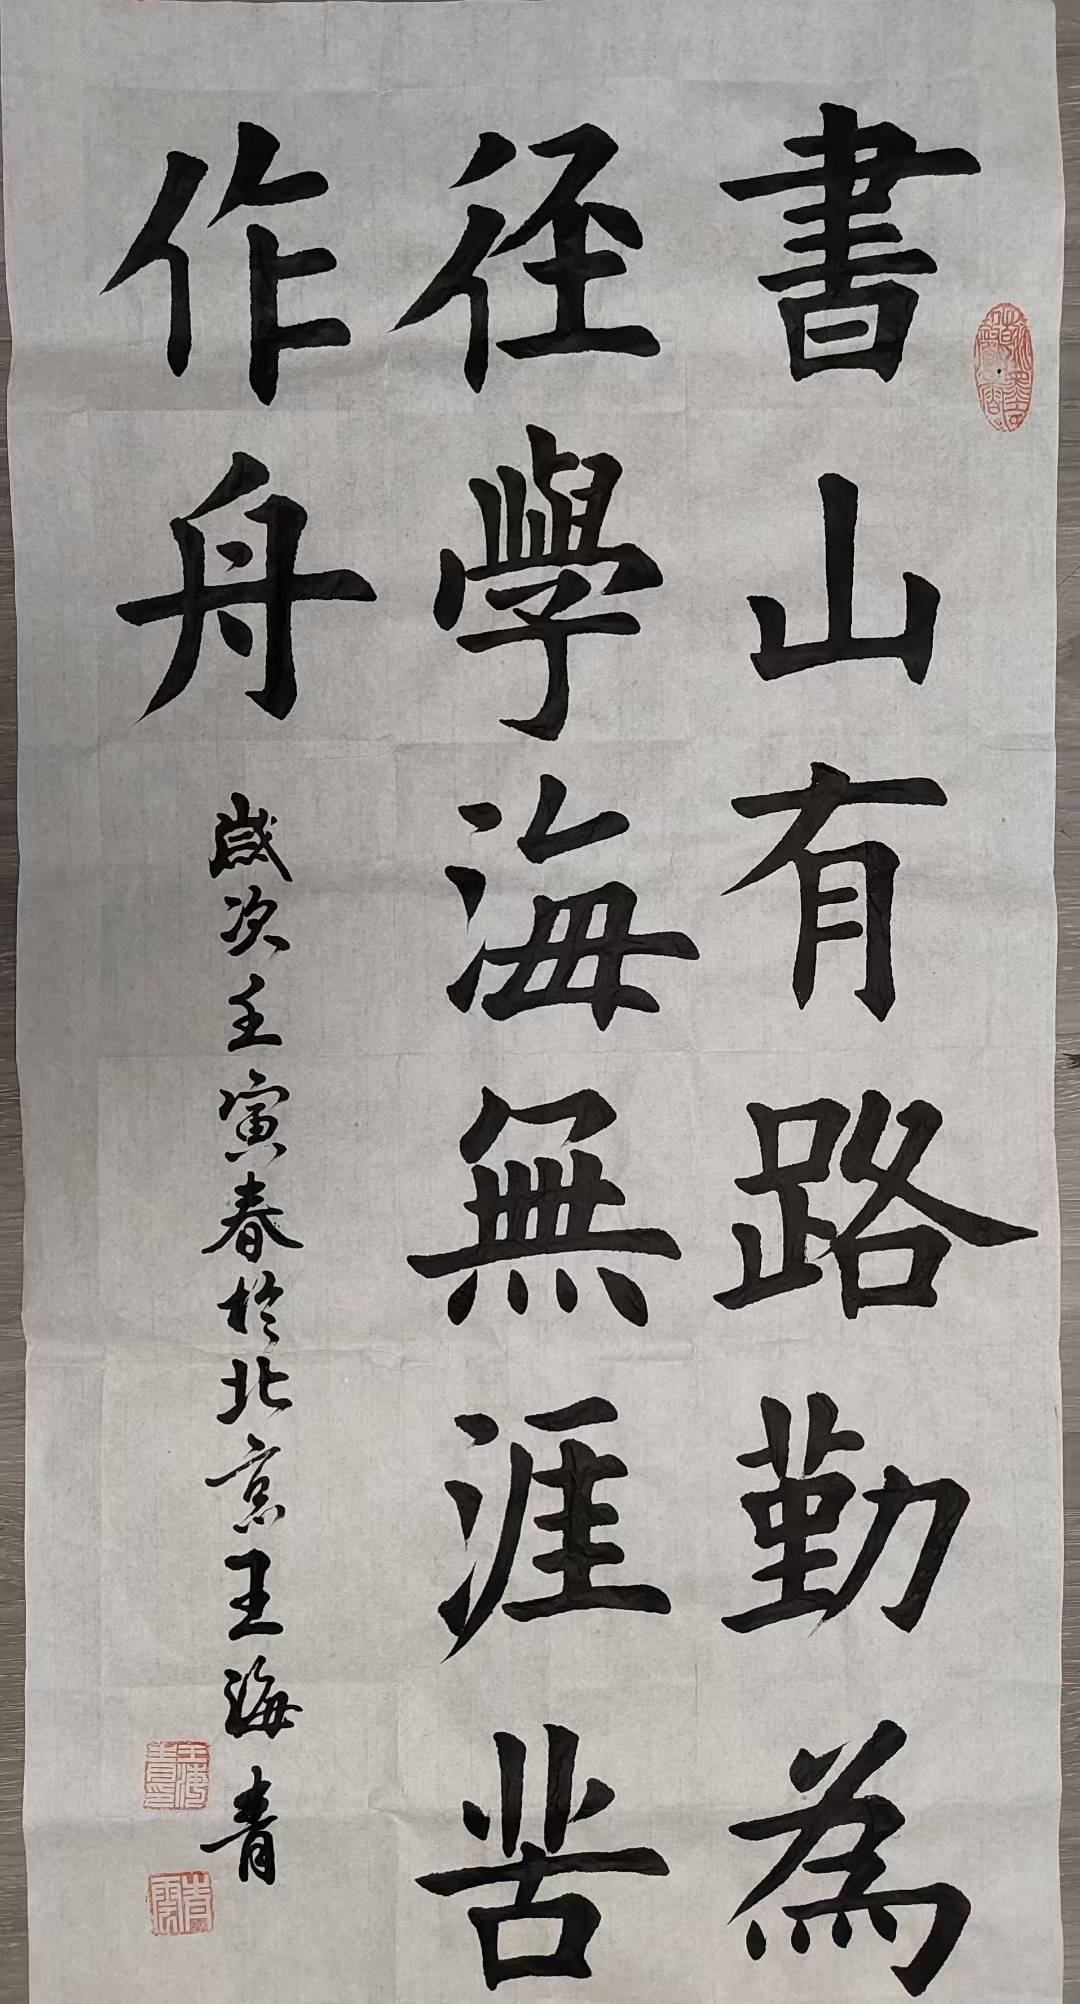 書山有路勤為
徑學海無涯苦
作舟
歲次壬寅春於北京王海青
王海青印